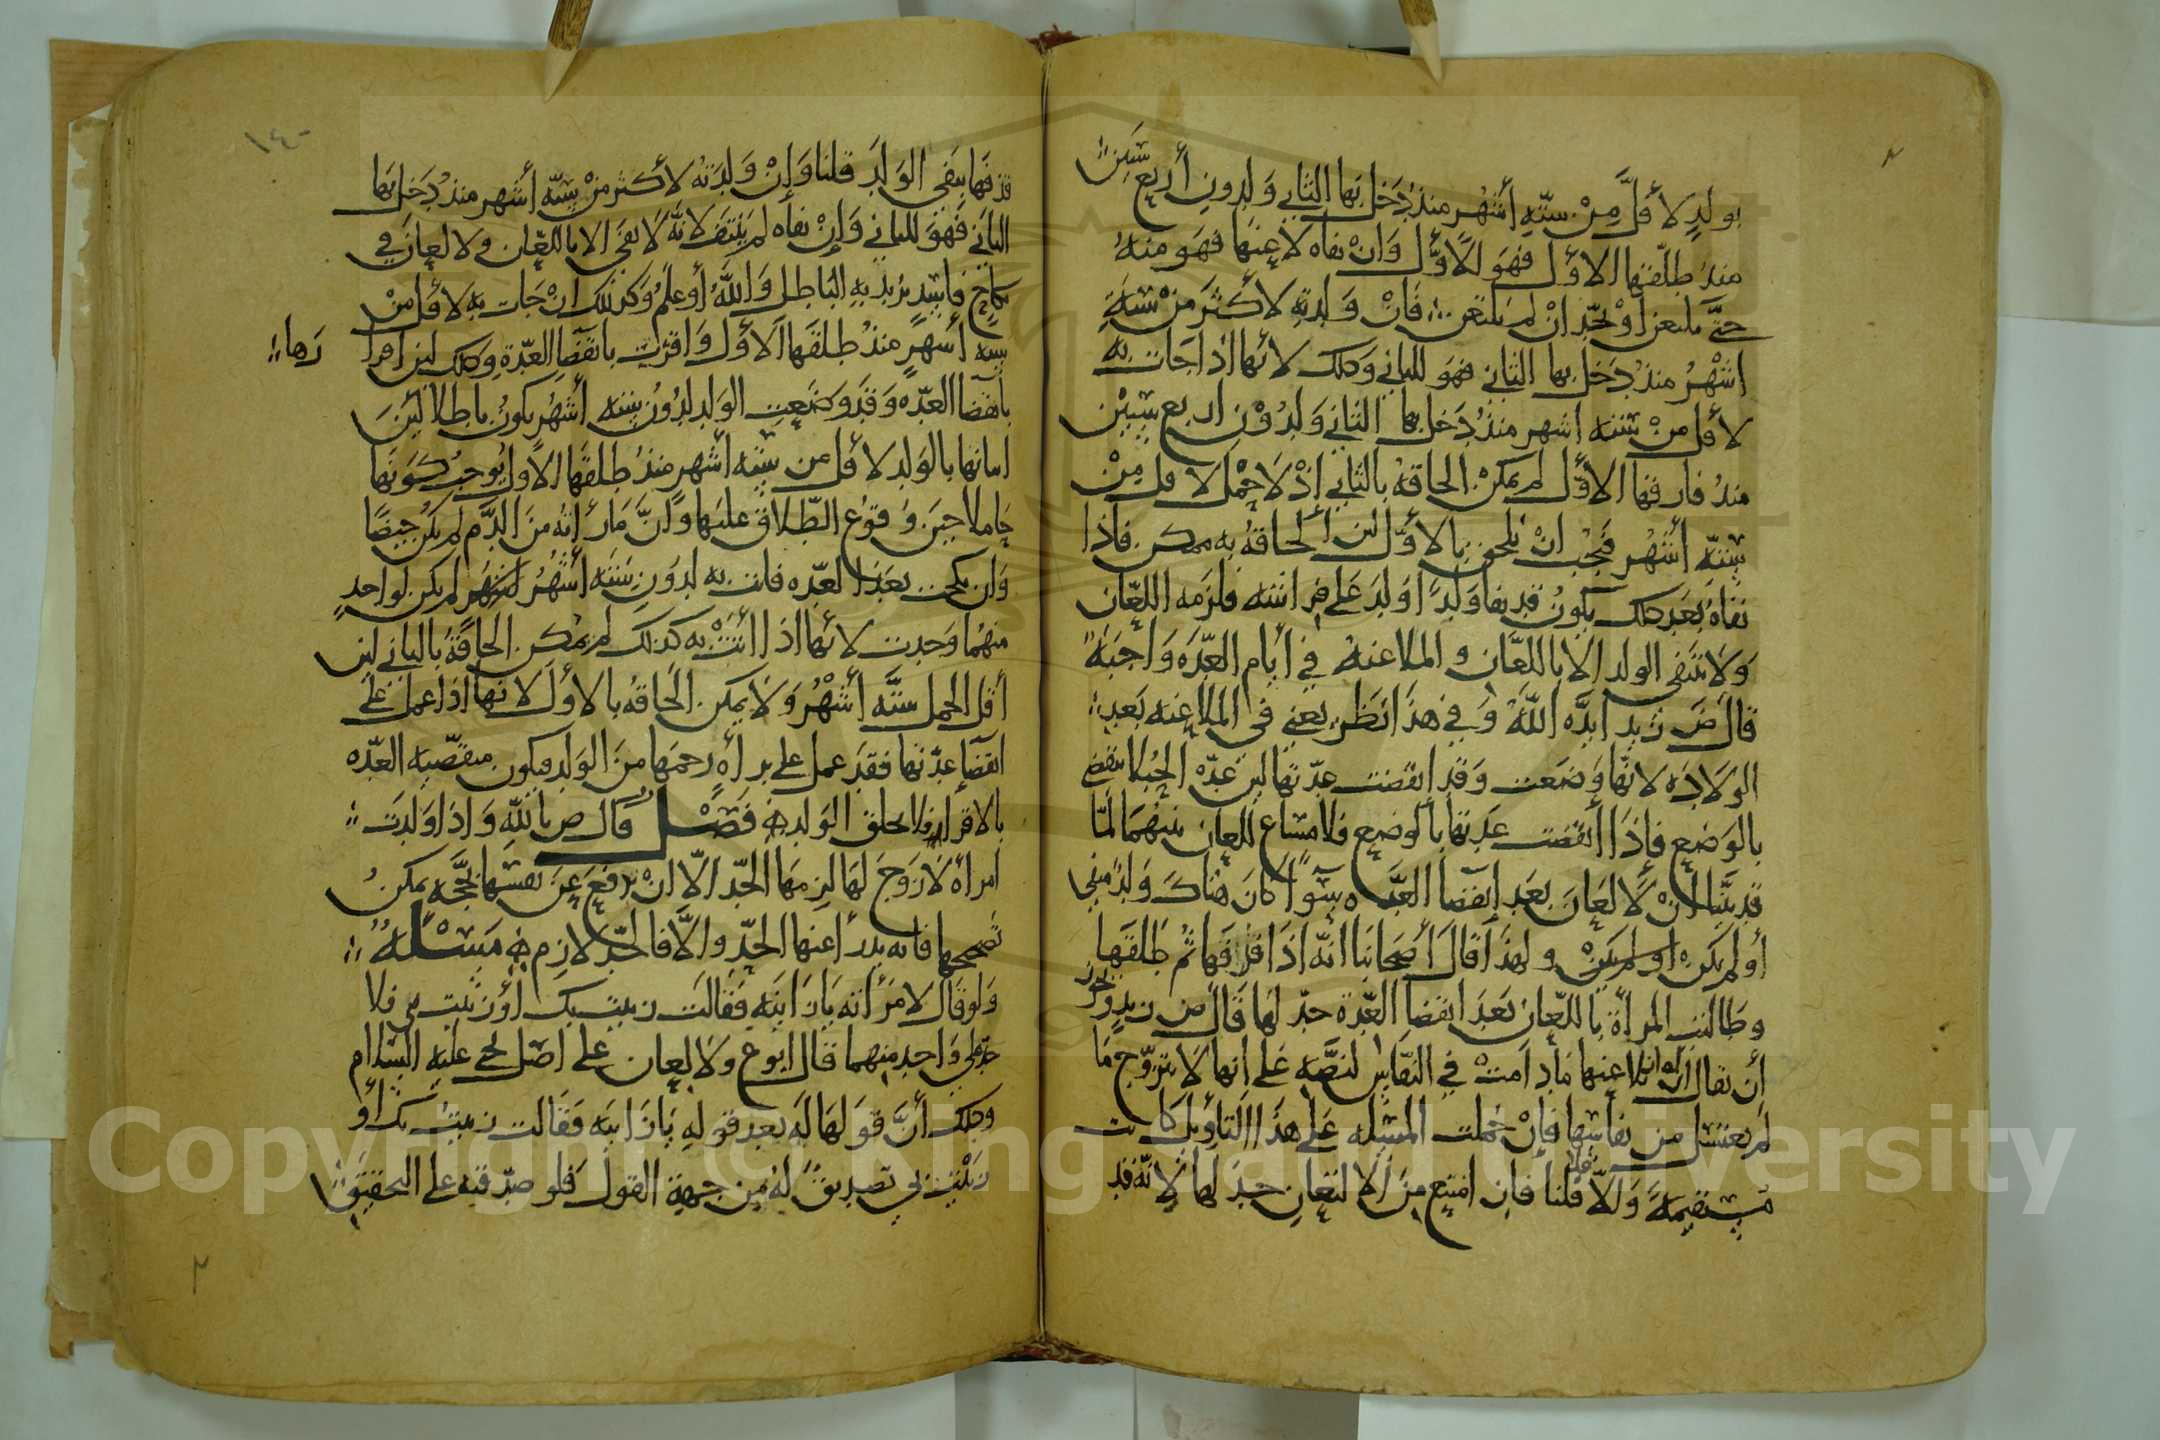 بولدٍ لأقلَّ مِنْ ستّةِ أشْهُر منذُ دَخل بها الثاني ولدون أربع سَنين
منذُ طلّقها الاوّل فهو للأوَّل وَانْ نفاه لاعنها فهو منهُ
حتَّى يلتعن أوْ يحدّ انْ لم يلتعن فَانْ وَلدته لأكثَر مِنْ ستّة
اشْهُر منذُ دَخل بها الثاني فهو للثاني وذلك لأنها اذا جَات به
لاقل مِنْ ستّة اشهر منذ دَخل بها الثاني وَلدُوْن اربع سنِيْن
منذُ فارقها الاوّل لم يمكنْ الحاقهُ بالثاني اذْ لا حمْل لاقل مِنْ
ستّة أشْهُر فيجبُ انْ يلحق بالاوَّل لئن الحاقهُ به ممكن فاذا
نفاهُ بَعد ذلك يكونُ قد نفا وَلدًا وُلدَ عَلى فراشه فلزمه اللعّان
وَلا ينتفى الولد الا باللعّان والملاعنة في أيام العدّه وَاجبَة
قال ص زيد ايّده اللّهُ وَفي هذا نظر يعني في الملاعنه بَعد
الولادَه لانّها وَضعت وَقد انقضت عدّتها لئن عدّه الحبلا تنقضي
بالوَضع فإذا أنقضت عدتها بالوضع فلا مساغ للعان بينهُما لمّا
قد بيَّنّا انْ لا لعَانَ بعَد إنقضا العدَّه سَوآ كان هناكَ وَلدٌ منفي
أو لم يكن ولهذا قال أصحَابنا انّه اذا قذفها ثم طلقها
وطالبت المرأة باللعّان بَعدَ انقضا العدّة حدّ لها قال ص زيد ويجوز
أن يقال انه يلاعنها مَادامَتْ في النفّاس لنصَّه على انها لا تتزوّج مَا
لم تغتسل من نفاسها فإنْ حُملت المسئله عَلى هذا التاويل كانت
مستقيمة وَالاّ فلا قلنا فإن امتنع مِنَ الالتعان حدَّ لها لأنّه قد
١٤٠
قذفها بنفي الوَلدَ قلنا وَإنْ وَلدَته لأكثر مِنْ ستّة أشهر منذُ دَخل بها
الثاني فَهوَ للثاني وَإنْ نفاه لم ينتَفِ لانّه لا ينفى الا باللعّان ولا لعان في
نكاح فاسِدٍ يريد به الباطل وَاللّهُ أعلم وكذلك انْ جَات به لاقل مِنْ
ستة أشهر منذُ طلقها الأول وَاقرت بانقضا العدّة وذلك لئن اقرا
رها
بانقضا العدّه وَقد وَضعت الوَلد لدُون ستة أشهر يكونُ باطلا لئنَ
اتيانها بالوَلد لأقل من ستّة أشهر منذُ طلقها الاوّل يُوجبُ كَونها
حَاملا حين وُقوع الطّلاق عليها وَانَّ مَا رأته مِنَ الدّم لم يكن حيضًا
وَان نكحت بعَد العدّه فاتت به لدون ستة أشهُر لم يكن لواحدٍ
منهُما وحدت لأنها اذا أتتْ به كذلك لم يمكن الحاقهُ بالثاني لئن
أقل الحمل ستّة أشْهُر وَلا يمكن الحاقهُ بالاول لانها اذا عمل على
انقضا عدّتها فقد عمل على براءة رحمَها مِنَ الوَلد فيكون منقضيه العدّه
بالاقرار فلا يلحق الوَلد به فَصْل قال ص بالله وَاذا وَلدَت
امرأة لا زوجَ لهَا لزمهَا الحَدّ الاّ انْ ترفعَ عن نفسها بحجّه يمكنُ
تصحيحها فانه يدرأ عنها الحدّ والاَّ فالحدّ لازم مسْئلهُ
وَلو قال لامرَأته يا زانيَه فقالت زنيت بك أو زنيت بي فلا
حدّ على وَاحدٍ منهما قال ابو ع ولا لعان على اصل يحيى عليه السلام
وذلك أنَّ قولها لَهُ بعد قوله يا زانيه فقالت زنيتُ بك أو
زنيت بي تصديقٌ لهُ مِن جهة القول فلو صدّقته على التحقيق